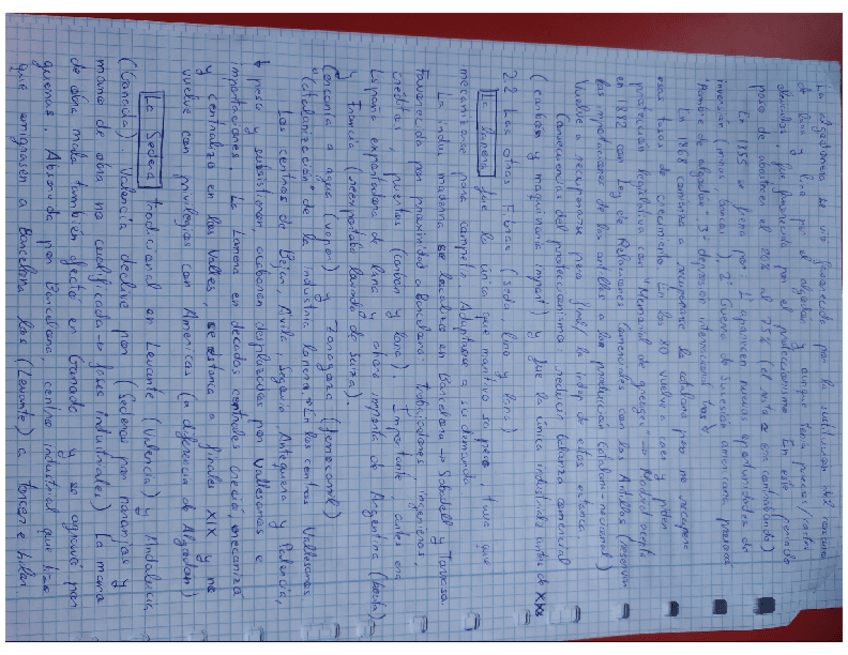 La algodonera se vio favorecida por la sustitución del consumo
de lana y lino por el algodón y aunque tenía precios/costes
elevados, fue favorecida por el proteccionismo. En este (periodo
paso de abastecer el 20% al 75% (el resto era contrabando)
En 1855 se frena por 1º aparecen nuevas oportunidades de
inversión ( bancos), 2º Guerra de Sucesión americana provocó
"Hambre de algodón" 3º depresión internacional tras
En 1868 comienza a recuperarse la catalana pero no recupera
esas tasas de crecimiento. En los 80 vuelve a caer y piden
protección legislativa con "Memorial de greuges" → Madrid acepta
en 1882 con Ley de Relaciones Comerciales con las Antillas (reservan
las importaciones de las antillas a la producción catalana-nacional)
Vuelve a recuperarse para la indep de estas colonias.
Consecuencias del proteccionismo: reducir balanza comercial
(carbón y maquinaria import) y fue la única industrial antes de XX
2.2 Las otras Fibras (seda, lino y lana)
La lanera fue la única que mantuvo su peso, tuvo que
mecanizarse para competir. Adaptarse a su demanda
La indus moderna se localiza en Barcelona → Sabadell y Tarrasa.
Favorecida por proximidad a Barcelona: trabajadores, ingenieros,
créditos, puertos (carbón y lana). Importante, antes era
España exportadora de lana y ahora importa de Argentina (basta)
y Francia (reexportaba lavando de suiza).
(Cercanía a agua (vapor) y Zaragoza (ferrocarril)
"(catalanización" de la industria lanera → En los centros Vallesanos.
Los centros de Béjar, Ávila, Segovia, Antequera y Palencia,
peso y subsistieron acabaron desplazados por Vallesanos e
importaciones. La Lanera en décadas centrales creció mecanizó
y centralizó en los Valles, se estanca a finales XIX y no
vuelve con privilegios con Américas (a diferencia de Algodón)
La Sedera tradicional en Levante (Valencia) y Andalucía
(Granada). Valencia declive por (Sederos por naranjas y
mano de obra no cualificada → fases industriales) La mano
de obra mala también afectó en Granada y se agravó por
guerras. Absorvida por Barcelona, centro industrial que hizo
que emigrasen a Barcelona los (Levante) a torcer e hilar